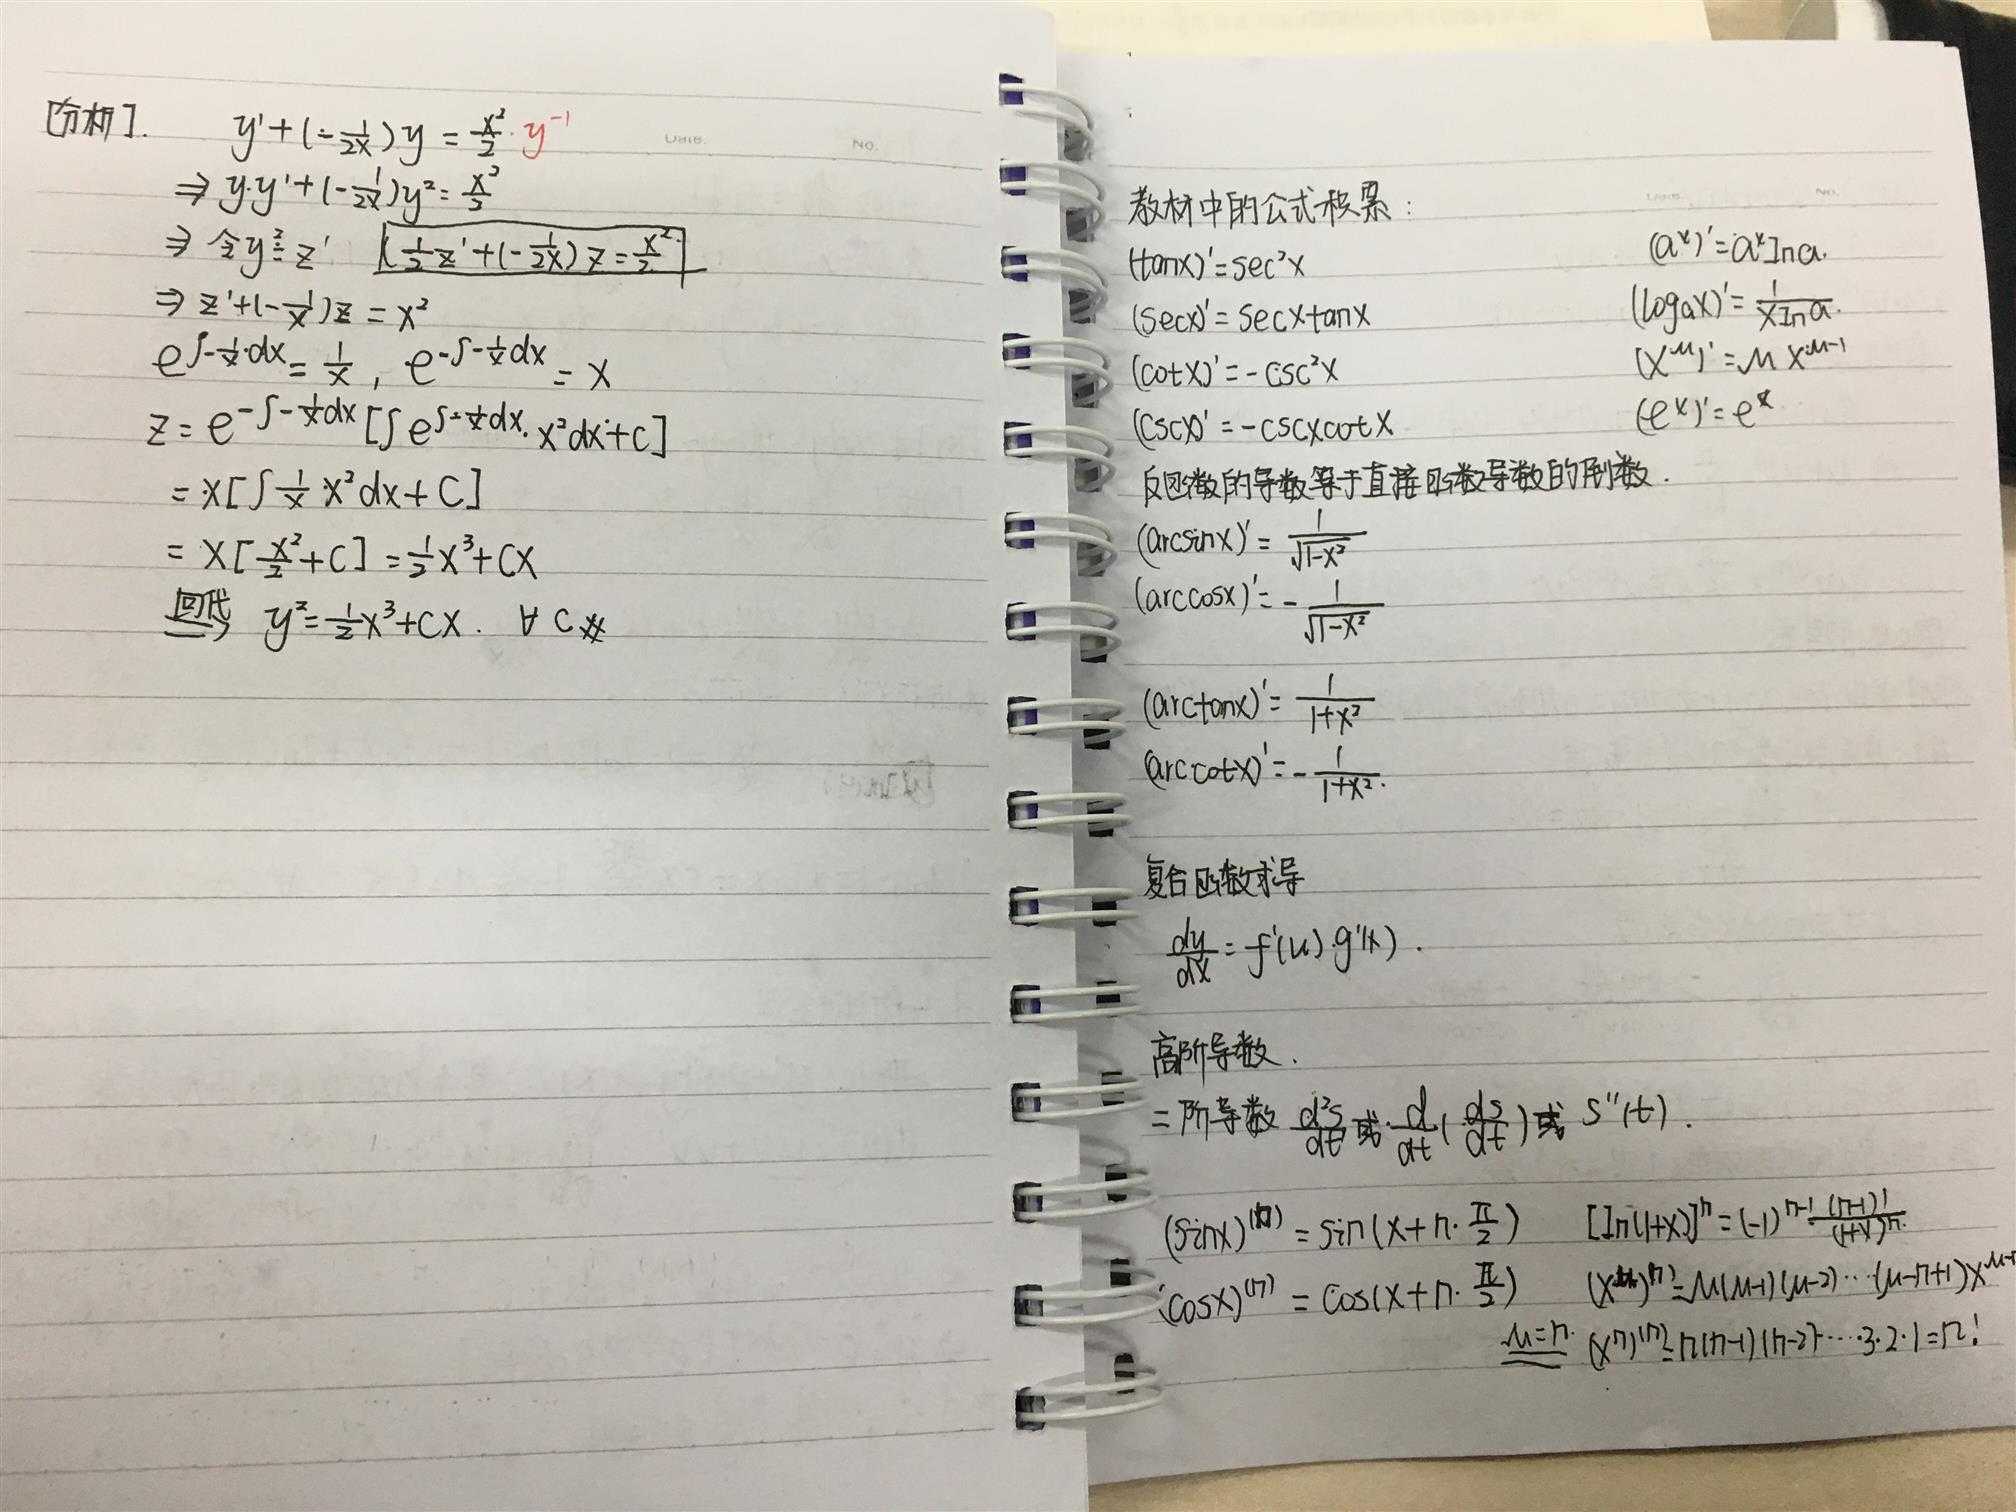 [分析]. y'+(-1/2x)y = x²/2·y⁻¹
⇒ y·y'+(-1/2x)y² = x²/2
⇒ 令y²=z' (1/2 z'+(-1/2x)z = x²/2)
⇒ z'+(-1/x)z = x²
e^∫-1/x·dx = 1/x, e^-∫-1/x dx = x
z = e^-∫-1/x dx [∫e^∫-1/x dx · x²dx+C]
= x[∫1/x·x²dx+C]
= x[x²/2+C] = 1/2x³+Cx
回代⇒ y² = 1/2x³+Cx. ∀ C
DATE. NO.
教材中的公式积累:
(tanx)'=sec²x
(secx)'=secxtanx
(cotx)'=-csc²x
(cscx)'=-cscxcotx
(aˣ)'=aˣlna.
(logₐx)'=1/xlna.
(x^μ)'=μx^μ-1
(eˣ)'=eˣ
反函数的导数等于直接函数导数的倒数.
(arcsinx)'=1/√1-x²
(arccosx)'=-1/√1-x²
(arctanx)'=1/1+x²
(arccotx)'=-1/1+x².
复合函数求导
dy/dx=f'(u)·g'(x).
高阶导数.
二阶导数 d²s/dt² 或 d/dt(ds/dt)或 s''(t).
(sinx)^(n)=sin(x+n·π/2) [ln(1+x)]^n=(-1)^n-1 (n-1)!/(1+x)^n.
(cosx)^(n)=cos(x+n·π/2) (x^μ)^(n)=μ(μ-1)(μ-2)···(μ-n+1)x^μ-n
μ=n. (xⁿ)^(n)=n(n-1)(n-2)····3·2·1=n!